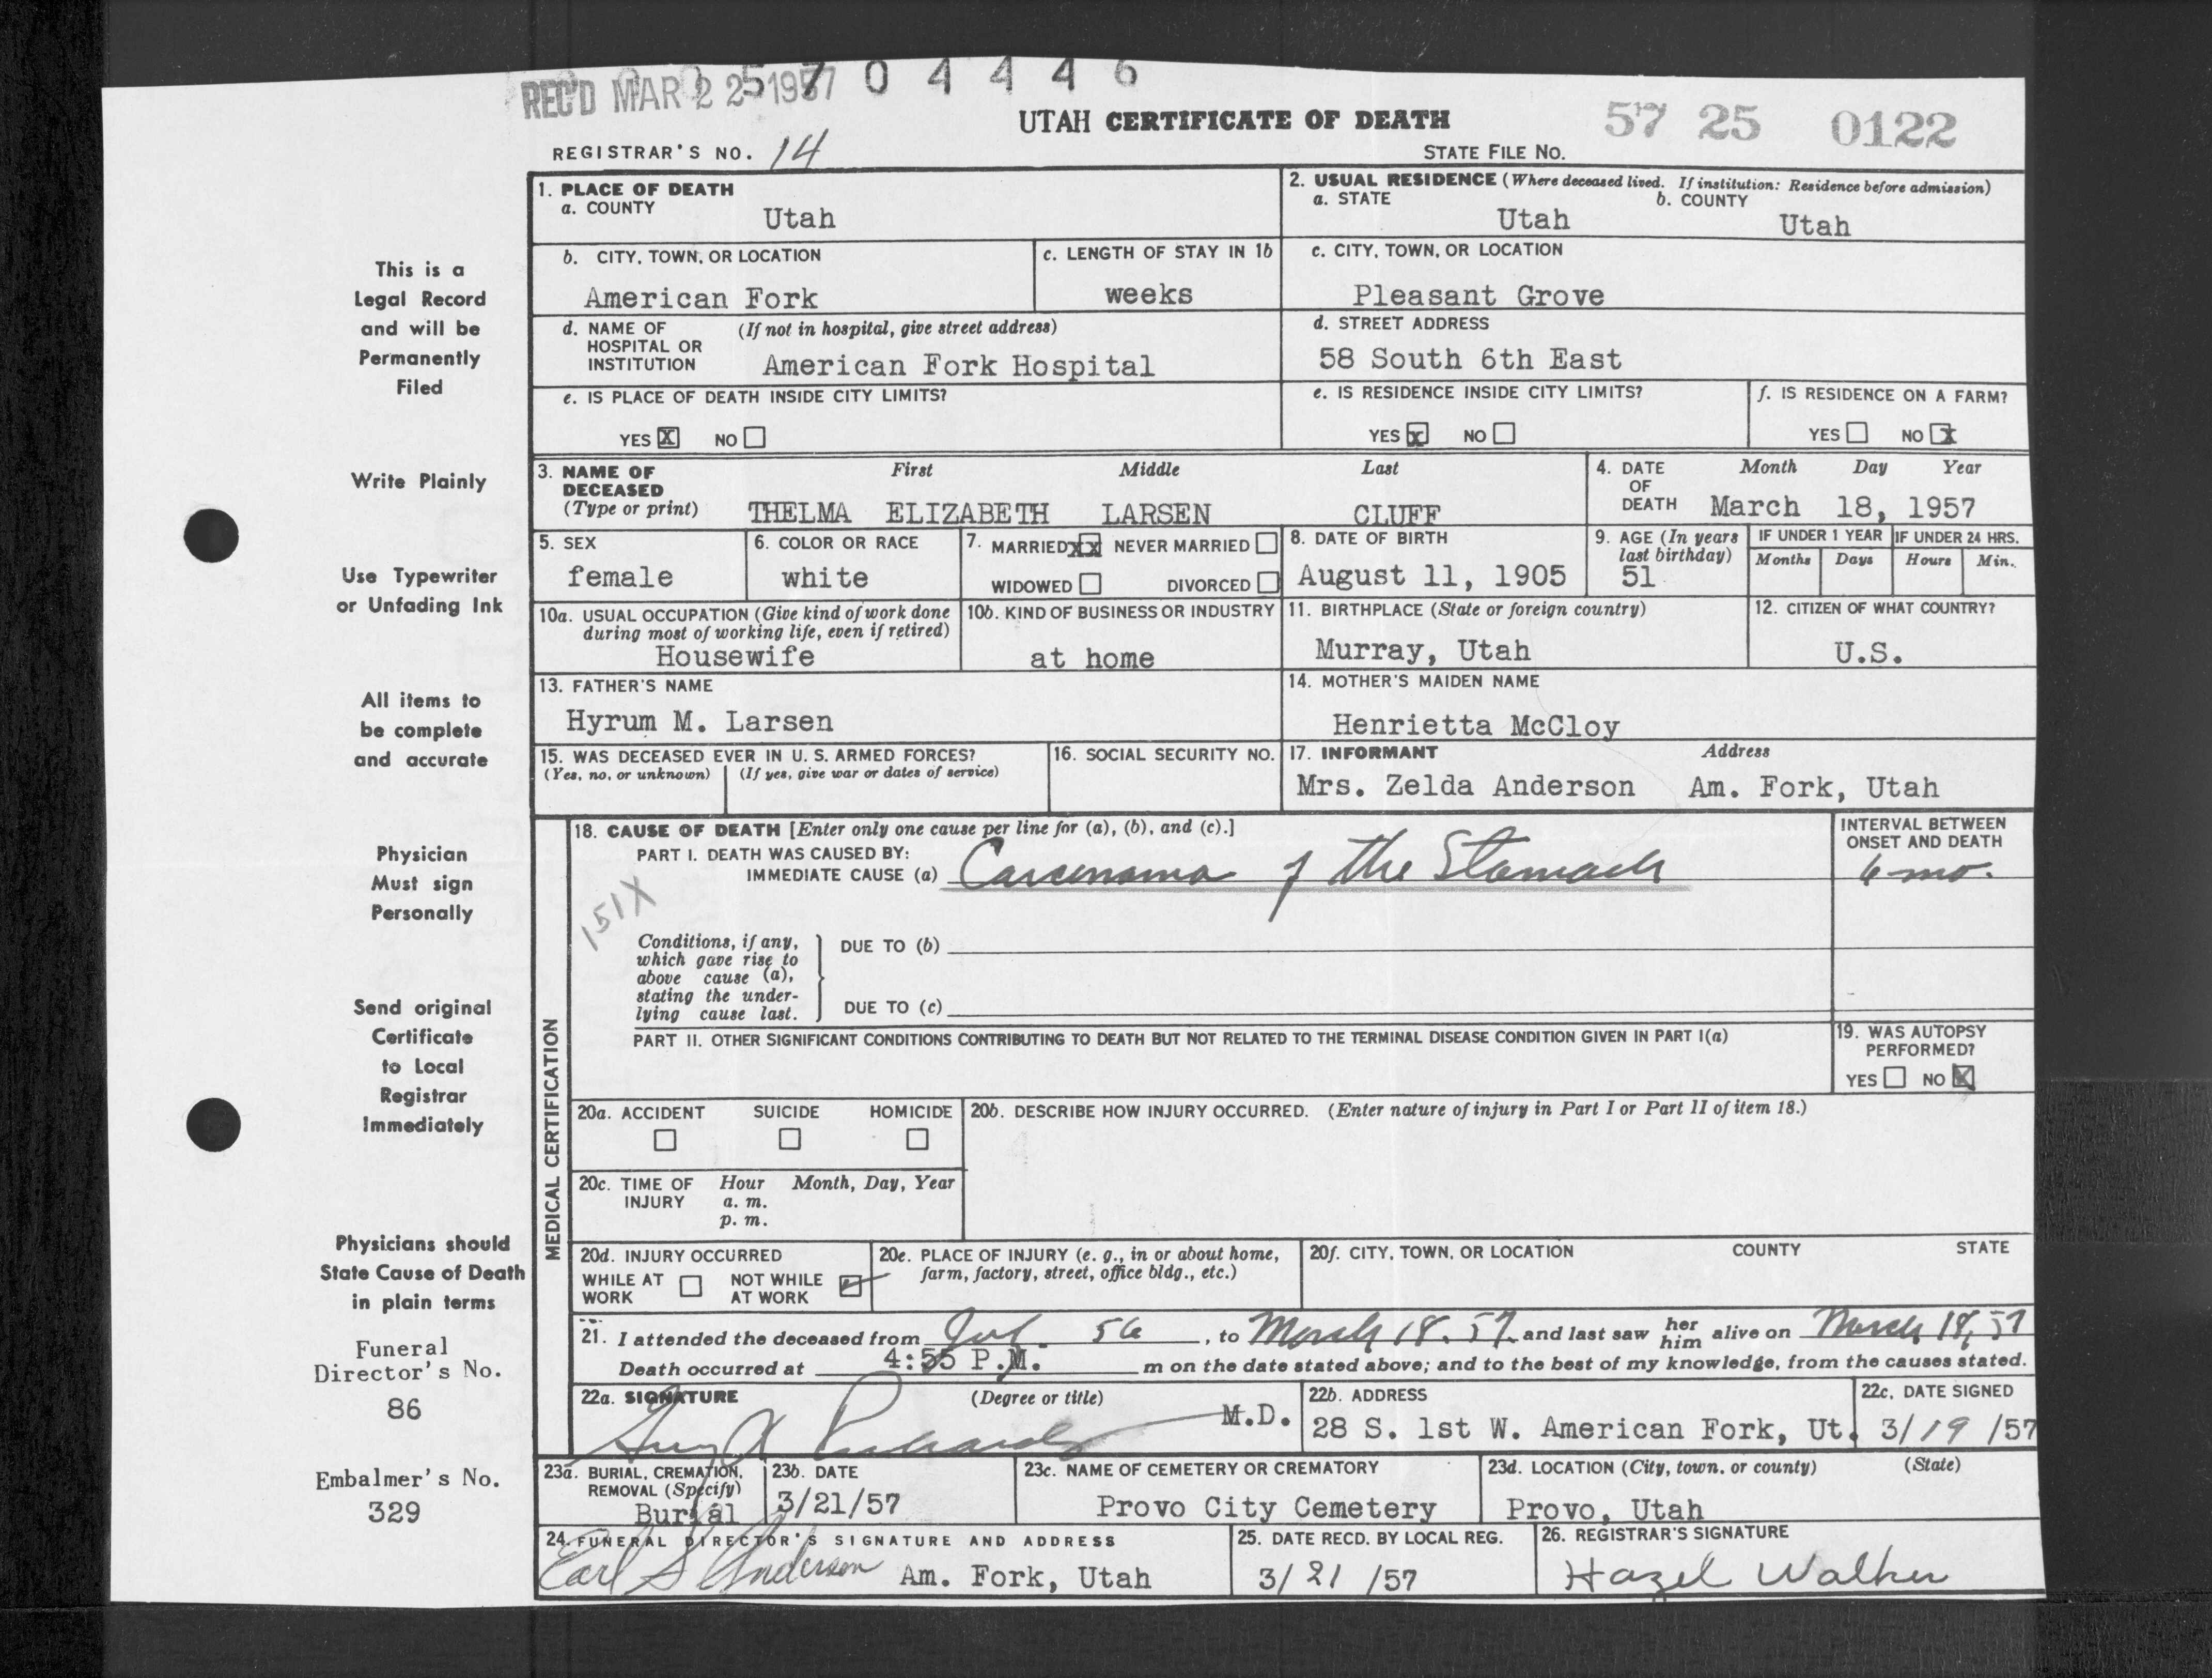 REC'D MAR 22 1957 0 4 4 4 6
UTAH CERTIFICATE OF DEATH
57 25 0122
REGISTRAR'S NO. 14
STATE FILE NO.
1. PLACE OF DEATH
a. COUNTY
Utah
2. USUAL RESIDENCE (Where deceased lived. If institution: Residence before admission)
a. STATE
Utah
b. COUNTY
Utah
b. CITY, TOWN, OR LOCATION
American Fork
c. LENGTH OF STAY IN 1b
weeks
c. CITY, TOWN, OR LOCATION
Pleasant Grove
d. NAME OF HOSPITAL OR INSTITUTION
(If not in hospital, give street address)
American Fork Hospital
d. STREET ADDRESS
58 South 6th East
e. IS PLACE OF DEATH INSIDE CITY LIMITS?
YES X NO
e. IS RESIDENCE INSIDE CITY LIMITS?
YES X NO
f. IS RESIDENCE ON A FARM?
YES NO X
3. NAME OF DECEASED
(Type or print)
First Middle Last
THELMA ELIZABETH LARSEN CLUFF
4. DATE OF DEATH
Month Day Year
March 18, 1957
5. SEX
female
6. COLOR OR RACE
white
7. MARRIED XX NEVER MARRIED
WIDOWED DIVORCED
8. DATE OF BIRTH
August 11, 1905
9. AGE (In years last birthday)
51
IF UNDER 1 YEAR
Months Days
IF UNDER 24 HRS.
Hours Min.
10a. USUAL OCCUPATION (Give kind of work done
during most of working life, even if retired)
Housewife
10b. KIND OF BUSINESS OR INDUSTRY
at home
11. BIRTHPLACE (State or foreign country)
Murray, Utah
12. CITIZEN OF WHAT COUNTRY?
U.S.
13. FATHER'S NAME
Hyrum M. Larsen
14. MOTHER'S MAIDEN NAME
Henrietta McCloy
15. WAS DECEASED EVER IN U. S. ARMED FORCES?
(Yes, no, or unknown) (If yes, give war or dates of service)
16. SOCIAL SECURITY NO.
17. INFORMANT Address
Mrs. Zelda Anderson Am. Fork, Utah
MEDICAL CERTIFICATION
18. CAUSE OF DEATH [Enter only one cause per line for (a), (b), and (c).]
PART I. DEATH WAS CAUSED BY:
IMMEDIATE CAUSE (a) Carcinoma of the Stomach
INTERVAL BETWEEN
ONSET AND DEATH
6 mo.
151X
Conditions, if any,
which gave rise to
above cause (a),
stating the under-
lying cause last.
DUE TO (b)
DUE TO (c)
PART II. OTHER SIGNIFICANT CONDITIONS CONTRIBUTING TO DEATH BUT NOT RELATED TO THE TERMINAL DISEASE CONDITION GIVEN IN PART I(a)
19. WAS AUTOPSY
PERFORMED?
YES NO X
20a. ACCIDENT SUICIDE HOMICIDE
20b. DESCRIBE HOW INJURY OCCURRED. (Enter nature of injury in Part I or Part II of item 18.)
20c. TIME OF INJURY
Hour Month, Day, Year
a. m.
p. m.
20d. INJURY OCCURRED
WHILE AT WORK NOT WHILE AT WORK
20e. PLACE OF INJURY (e. g., in or about home,
farm, factory, street, office bldg., etc.)
20f. CITY, TOWN, OR LOCATION COUNTY STATE
21. I attended the deceased from 56, to March 18. 57 and last saw her him alive on March 18, 57
Death occurred at 4:55 P.M. m on the date stated above; and to the best of my knowledge, from the causes stated.
22a. SIGNATURE (Degree or title)
M.D.
22b. ADDRESS
28 S. 1st W. American Fork, Ut.
22c. DATE SIGNED
3/19/57
23a. BURIAL, CREMATION,
REMOVAL (Specify)
Burial
23b. DATE
3/21/57
23c. NAME OF CEMETERY OR CREMATORY
Provo City Cemetery
23d. LOCATION (City, town, or county) (State)
Provo, Utah
24. FUNERAL DIRECTOR'S SIGNATURE AND ADDRESS
Earl S Anderson Am. Fork, Utah
25. DATE RECD. BY LOCAL REG.
3/21/57
26. REGISTRAR'S SIGNATURE
Hazel Walker
This is a
Legal Record
and will be
Permanently
Filed
Write Plainly
Use Typewriter
or Unfading Ink
All items to
be complete
and accurate
Physician
Must sign
Personally
Send original
Certificate
to Local
Registrar
Immediately
Physicians should
State Cause of Death
in plain terms
Funeral
Director's No.
86
Embalmer's No.
329